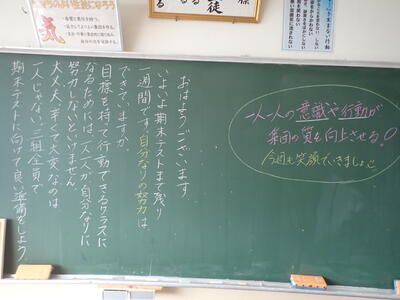 おはようございます
いよいよ期末テストまで残り
一週間です。自分なりの努力は
できていますか
目標を持て行動できるクラスに
なるためには、一人一人が自分なりに
努力しないといけません
大丈夫、辛くて大変なのは
一人じゃない、三組全員で
期末テストに向けて良い準備をしよう
一人一人の意識や行動が
集団の質を向上させる!
今週も笑顔でいきましょう
徒